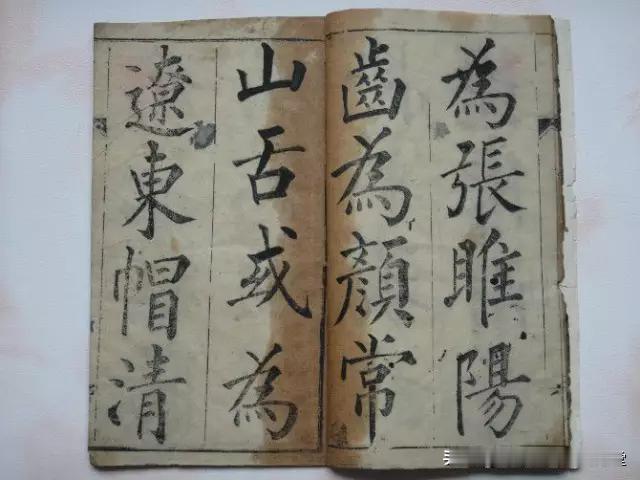 為張睢陽
齒為顏常
山舌或為
遼東帽清